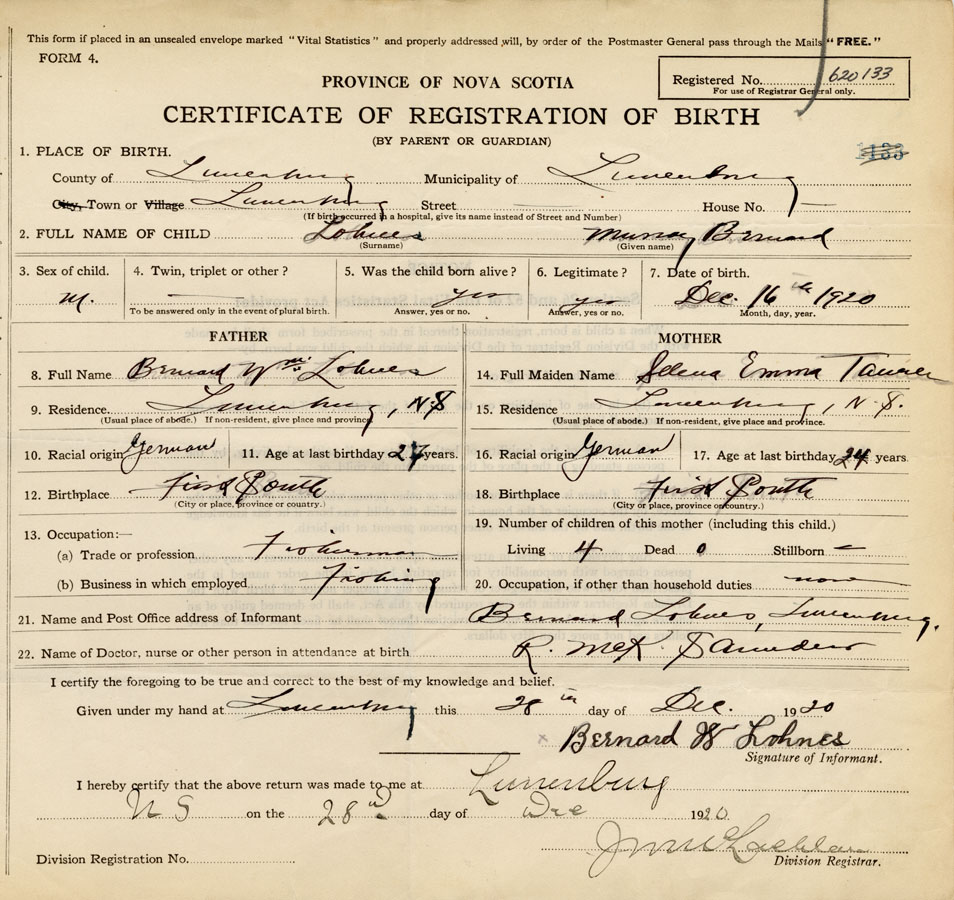 This form if placed in an unsealed envelope marked "Vital Statistics" and properly addressed will, by order of the Postmaster General pass through the Mails "FREE."
FORM 4.
Registered No. 620133
For use of Registrar General only.
PROVINCE OF NOVA SCOTIA
CERTIFICATE OF REGISTRATION OF BIRTH
(BY PARENT OR GUARDIAN)
1133
1. PLACE OF BIRTH.
County of Lunenburg Municipality of Lunenburg
City, Town or Village Lunenburg Street — House No. —
(If birth occurred in a hospital, give its name instead of Street and Number)
2. FULL NAME OF CHILD Lohnes Murray Bernard
(Surname) (Given name)
3. Sex of child. 4. Twin, triplet or other? 5. Was the child born alive? 6. Legitimate? 7. Date of birth.
M. — yes yes Dec. 16th 1920
To be answered only in the event of plural birth. Answer, yes or no. Answer, yes or no. Month, day, year.
FATHER MOTHER
8. Full Name Bernard Wm. Lohnes 14. Full Maiden Name Selena Emma Tanner
9. Residence. Lunenburg, N.S 15. Residence Lunenburg, N.S.
(Usual place of abode.) If non-resident, give place and province. (Usual place of abode.) If non-resident, give place and province.
10. Racial origin German 11. Age at last birthday 27 years. 16. Racial origin German 17. Age at last birthday 24 years.
12. Birthplace First South 18. Birthplace First South
(City or place, province or country.) (City or place, province or country.)
13. Occupation:— 19. Number of children of this mother (including this child.)
(a) Trade or profession Fisherman Living 4 Dead 0 Stillborn —
(b) Business in which employed Fishing 20. Occupation, if other than household duties none
21. Name and Post Office address of Informant Bernard Lohnes, Lunenburg.
22. Name of Doctor, nurse or other person in attendance at birth R. McK. Saunders
I certify the foregoing to be true and correct to the best of my knowledge and belief.
Given under my hand at Lunenburg this 28th day of Dec. 1920
Bernard W Lohnes
Signature of Informant.
I hereby certify that the above return was made to me at Lunenburg
N S on the 28th day of Dec 1920.
Division Registration No. Division Registrar.